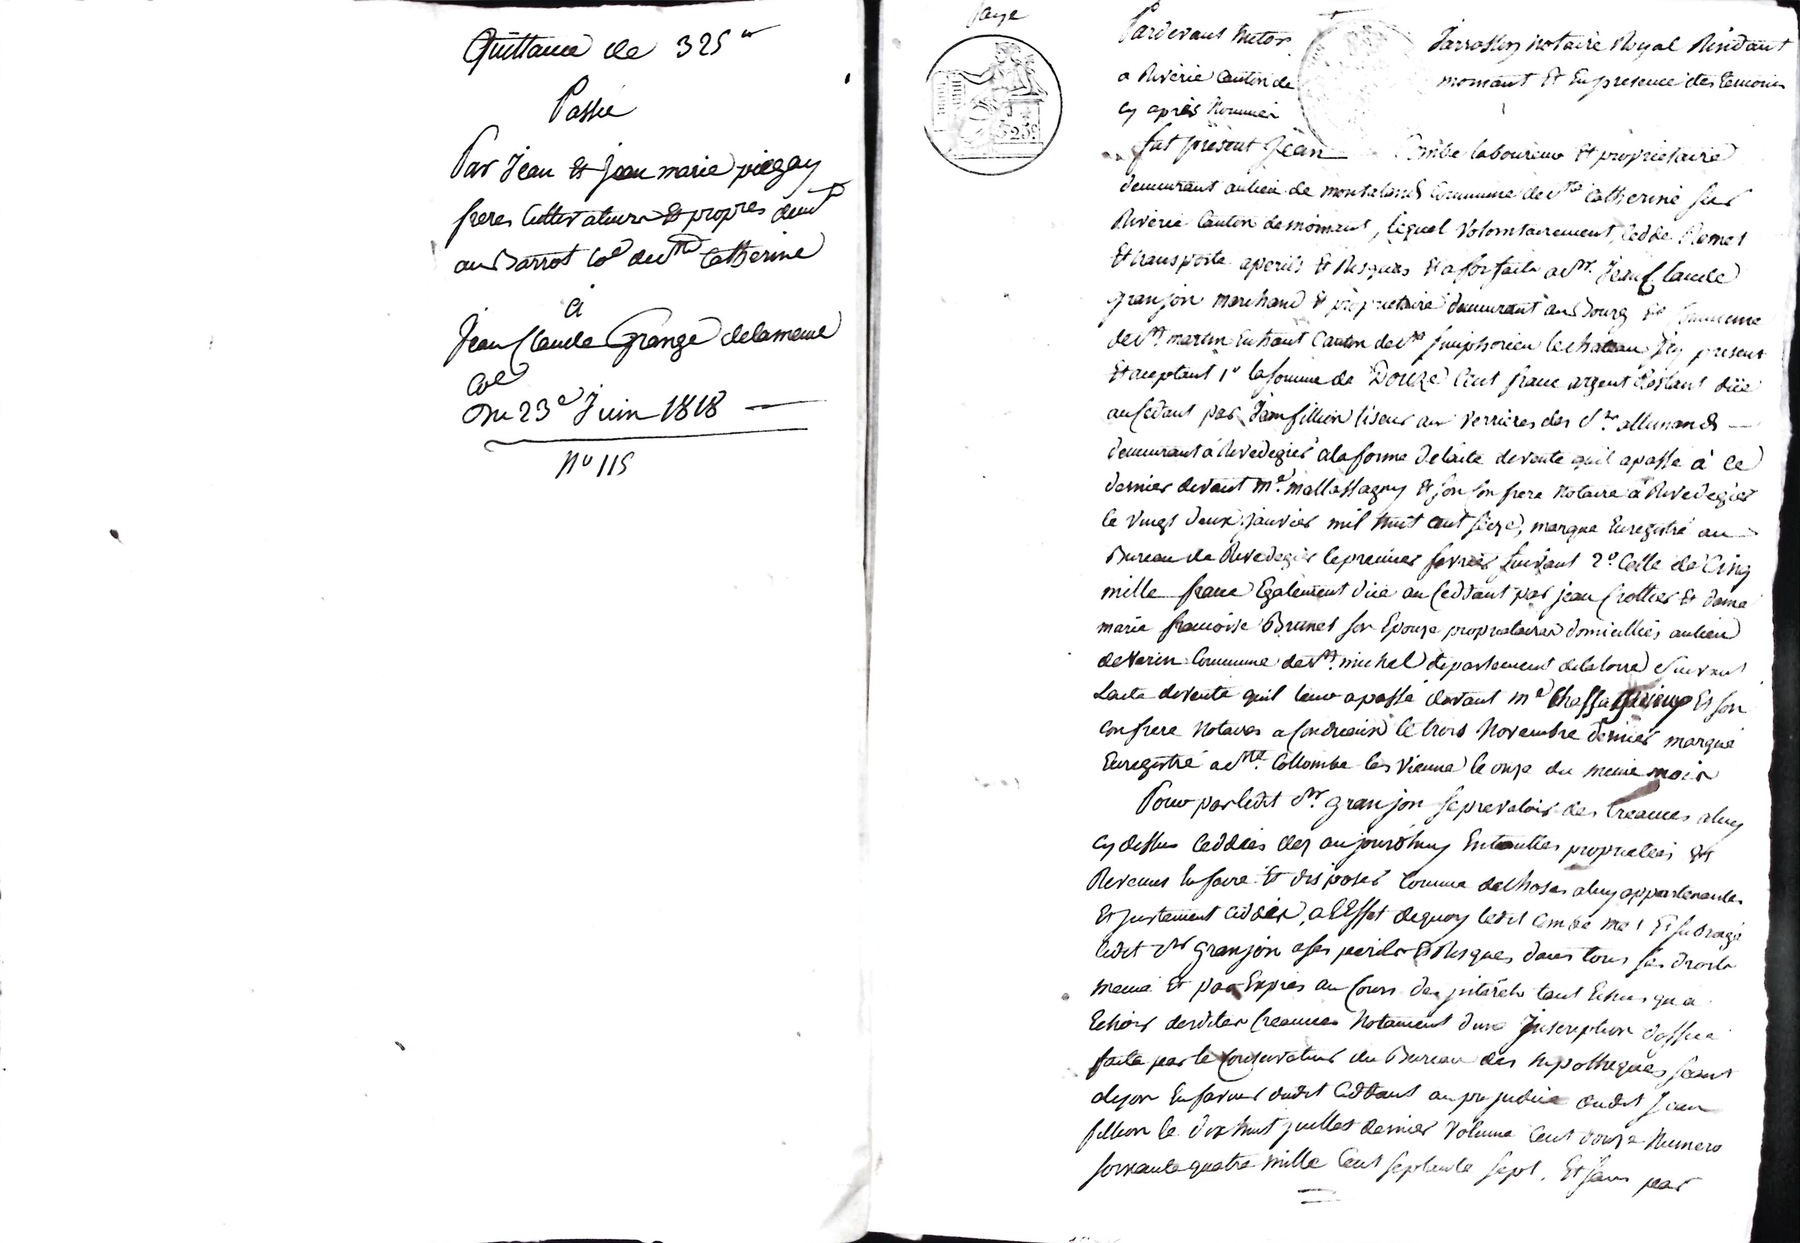 Quittance de 325 ᶠʳ
Passée
Par Jean et jean marie piegay
freres Cultivateurs et propres demt
au Barrot Coe de Ste Catherine
à
Jean Claude Grange delameme
Coe
Du 23e Juin 1818
No 115
Paye
325
Pardevant Me Tarrassin notaire Royal Résidant
a Riverie Canton de mornant Et En presence des temoins
cy après Nommés
fut présent Jean Combe laboureur et proprietaire
demeurant au lieu de montaland Commune de Ste Catherine sur
Riverie Canton de mornant, lequel volontairement, Cedde Remet
Et transporte a perils Et Risques Et a forfaits a Mr. Jean Claude
granjon marchand Et propriétaire demeurant au Bourg Et Commune
de St martin En haut Canton de St Simphorien le chateau Icy present
Et aceptant 1o la somme de Douze Cent franc argent Restant düe
au Cedant par Jean fillion tiseur aux verrières des Srs allimands
demeurant a Rivedegier a la forme de lacte de vente quil apassé à ce
dernier devant me. mallassagny Et son Confrere Notaire a Rivedegier
le vingt deux janvier mil huit cent seize, marque Enregistré au
Bureau de Rivedegier le premier fevrier suivant 2o Celle de Cinq
mille franc Egalement düe au Ceddant par jean Crottier Et dame
marie francoise Brunet son Epouse proprietaires domicilliés au lieu
de verin Commune de St. michel departement de la loire Suivant
Lacte de vente quil leur a passé devant me Et son
confrere Notaires a Condrieux le trois Novembre dernier marqué
Enregistré a Ste. Collombe les vienne le onze du meme mois
Pour par ledit Sr. granjon se prevaloir des Creances a luy
cy dessus Ceddées dez aujourdhuy En touttes proprietées Et
Revenus En faire Et disposer Comme de choses a luy appartenantes
Et justement Ceddées, a l'Effet de quoy ledit Combe met Et subroge
ledit Sr granjon a ses perils Et Risques dans tous ses droits
meme Et par Exprès au Cours des intérêts tant Echus qu a
Echoir desdites Creances Notament dune Inscription doffice
faite par le Conservateur du Bureau des hypotheques séant
a lyon En faveur dudit Ceddant au prejudice dudit Jean
fillion le dix huit juillet dernier volume Cent douze Numero
soixante quatre mille Cent septante sept. Et sans par